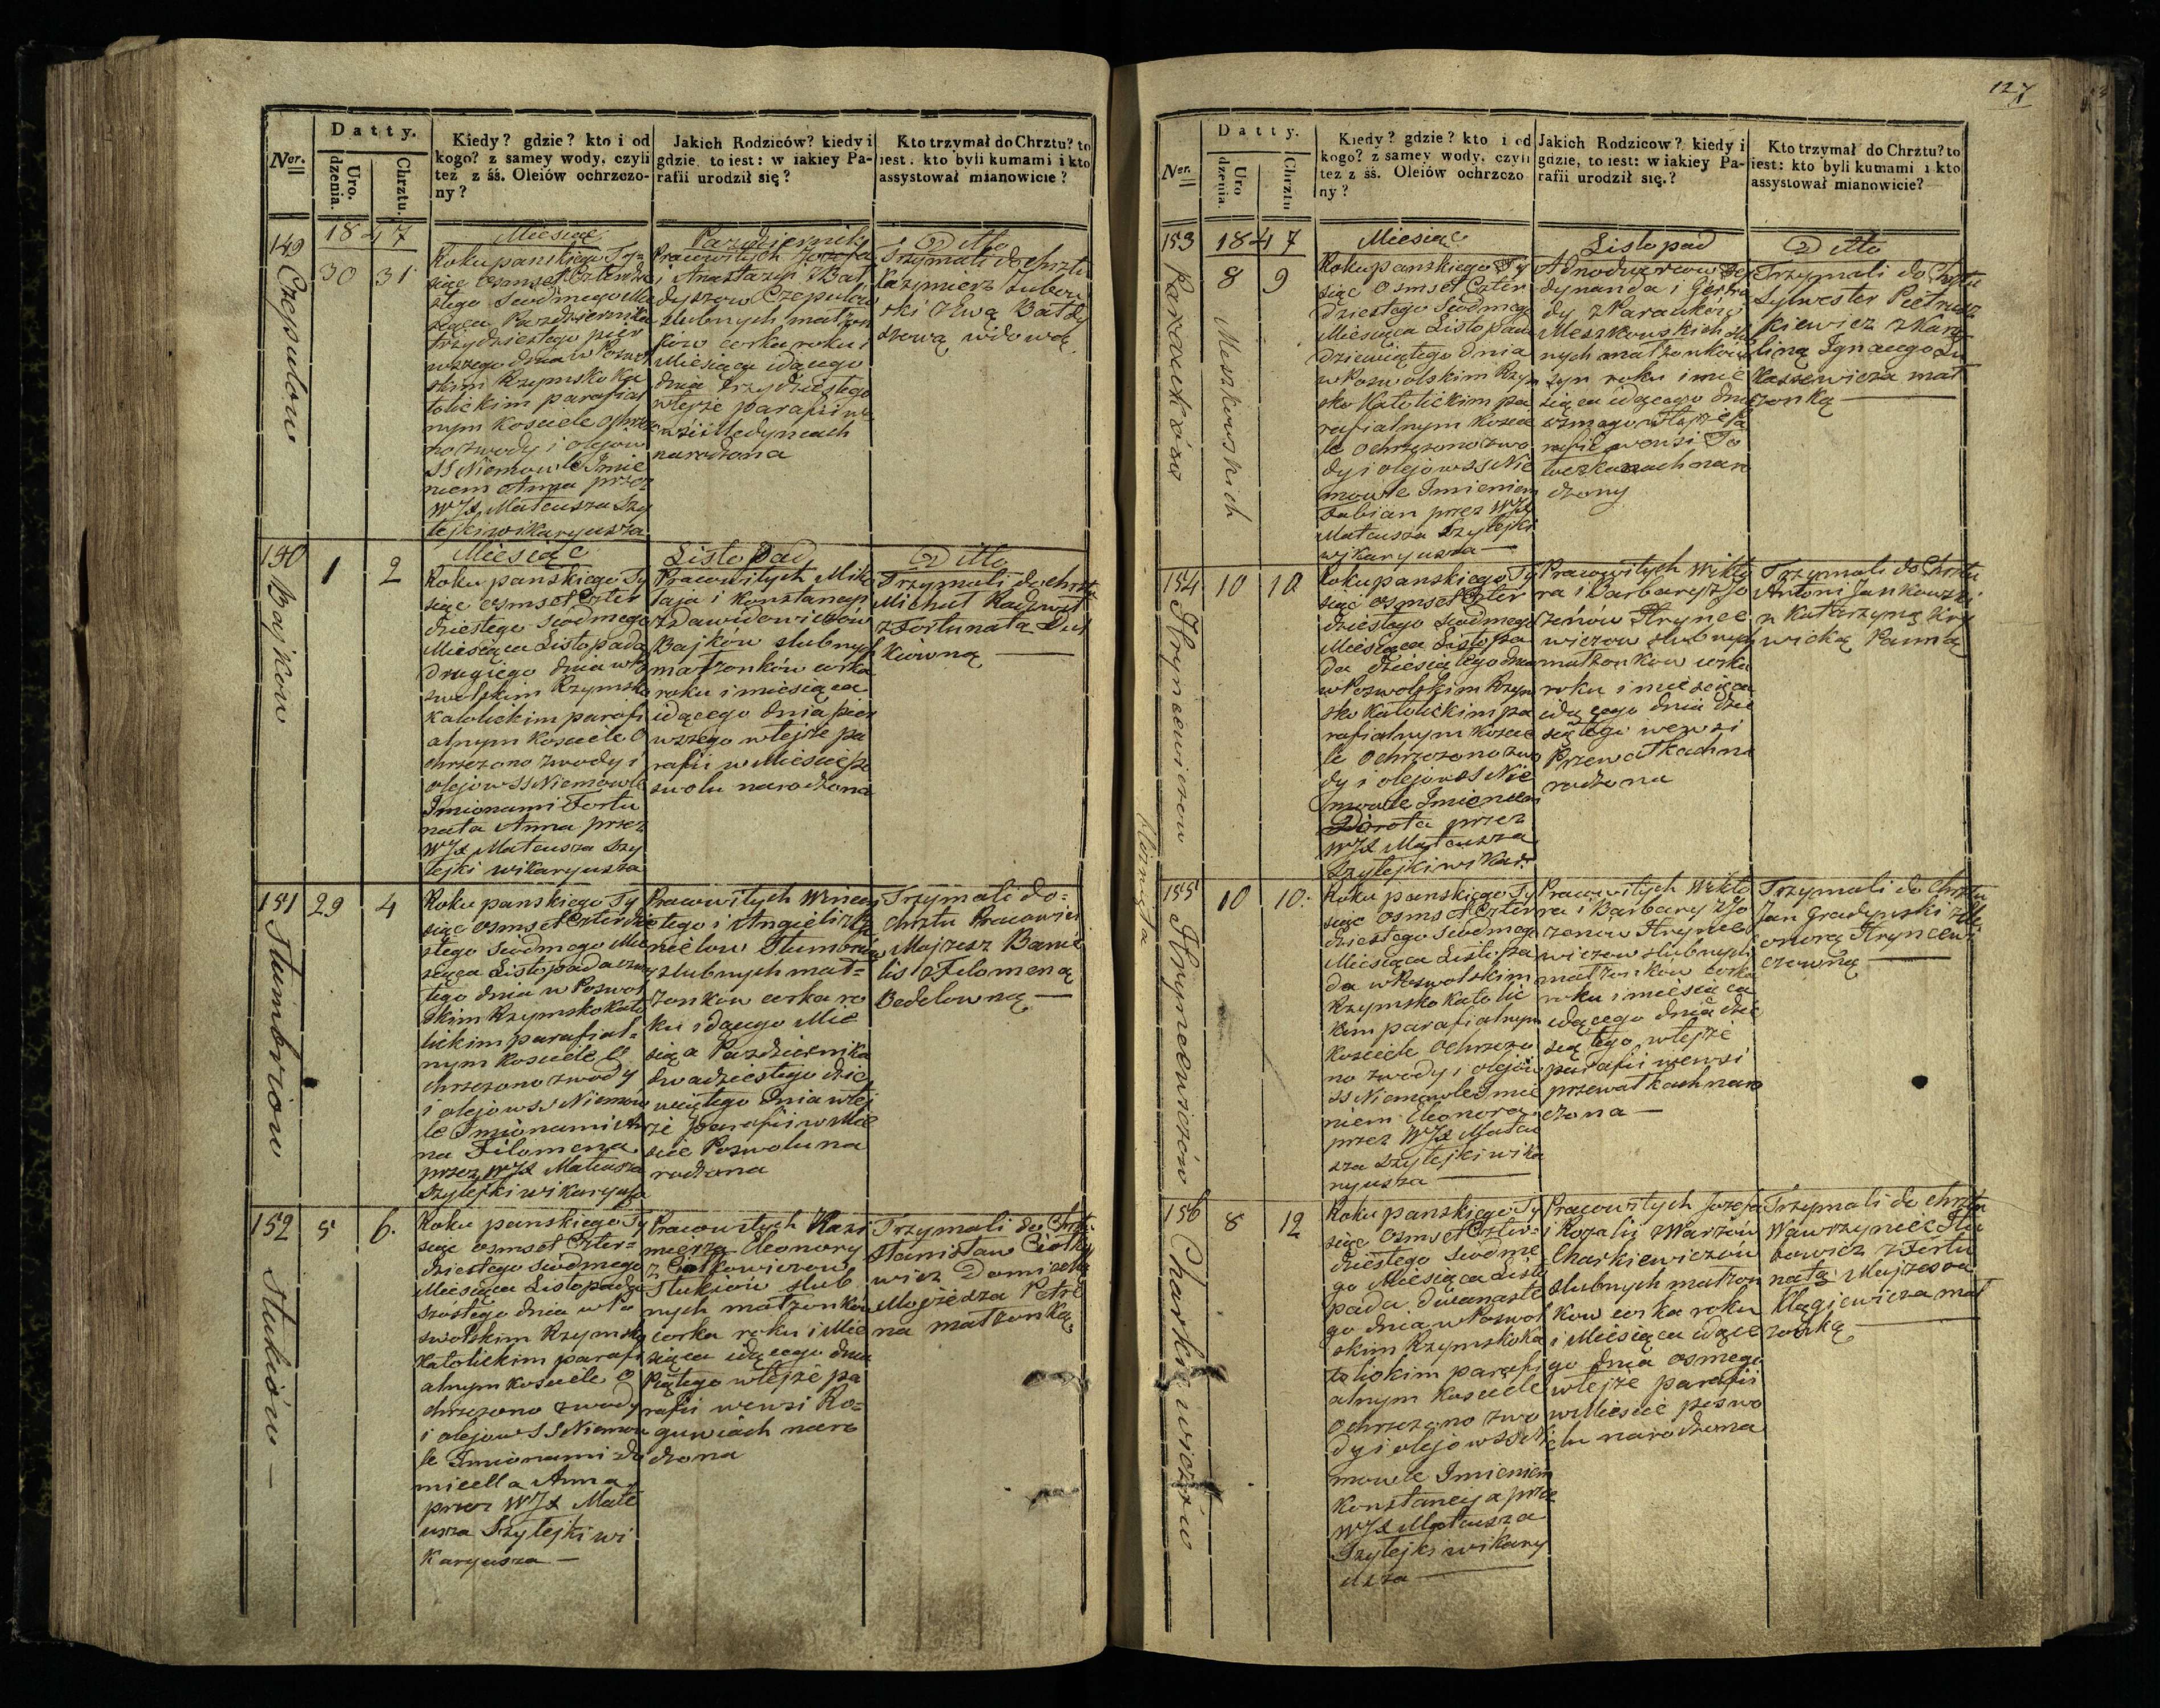 127
Datty.
Kiedy? gdzie? kto i od
kogo? z samey wody, czyli
też z śś. Oleiów ochrzczo-
ny?
Jakich Rodziców? kiedy i
gdzie, to iest: w iakiey Pa-
rafii urodził się?
Kto trzymał do Chrztu? to
iest: kto byli kumami i kto
assystował mianowicie?
Ner.
Uro.
dzenia.
Chrztu.
1847
Miesiąc
Pazdziernik
Ditto
149
Czepulow
30
31
Roku panskiego Ty-
siąc osmset Czterdzie
stego Siodmego Mie
siąca Pazdziernika
trzydziestego pier
wszego dnia w Poswol
skim Rzymsko Ka
tolickim parafial
nym Kosciele Ochrzczo
no z wody i olejow
SS Niemowle Imie
niem Anna przez
WJX Mateusza Szy
lejki wikaryusza
Pracowitych Jozefa
i Anastazyi z Bał
dyszow Czepulow
slubnych małżon
kow corka roku i
Miesiąca idącego
dnia trzydziestego
w tejże parafii we
wsi Medynach
narodzona
Trzymali do chrztu
Kazimierz Lubow
ski z Ewą Bałdy
szową wdową
150
Bajkow
1
2
Miesiąc
Listopad
Ditto
Roku panskiego Ty
siąc osmset Czter
dziestego Siodmego
Miesiąca Listopada
drugiego dnia w Po
swolskim Rzymsko
Katolickim parafi
alnym Kosciele O
chrzczono z wody i
olejow SS Niemowle
Imionami Fortu
nata Anna przez
WJX Mateusza Szy
lejki wikaryusza
Pracowitych Miko
łaja i Konstancyi
z Dawidowiczów
Bajków slubnych
małżonków corka
roku i miesiąca
idącego dnia pier
wszego w tejże pa
rafii w Miescie Po
swolu narodzona
Trzymali do chrztu
Michał Radzwił
z Fortunatą Dul
kiówną
151
Stumbriow
29
4
Roku panskiego Ty
siąc osmset Czterdzie
stego Siodmego Mie
siąca Listopada czwar
tego dnia w Poswol
skim Rzymsko Kato
lickim parafial-
nym Kosciele O
chrzczono z wody
i olejow SS Niemow
le Imionami An
na Filomena
przez WJX Mateusza
Szylejki wikaryusza
Pracowitych Wincen
tego i Angieli z
Stumbriów
slubnych mał-
żonkow corka ro
ku idącego Mie
siąca Pazdziernika
dwadziestego dzie
wiątego dnia w tej
że parafii w Mie
scie Poswolu na
rodzona
Trzymali do-
chrztu Pracowici
Mojzesz Banie
lis z Filomeną
Bedelowną
152
Stukiów
5
6.
Roku panskiego Ty
siąc osmset Czter-
dziestego Siodmego
Miesiąca Listopada
szostego dnia w Po
swolskim Rzymsko
Katolickim parafi
alnym Kosciele O
chrzczono z wody
i olejow SS Niemow
le Imionami Do
micella Anna
przez WJX Mate
usza Szylejki wi
karyusza
Pracowitych Kazi
mierza Eleonory
Stukiów slub
nych małżonków
corka roku i Mie
siąca idącego dnia
Piątego w tejże pa
rafii we wsi Ro-
guwiach naro
dzona
Trzymali do Chrztu
Stanisław
wicz Domicelą
Mojżesza Petre
na małżonką
Datty.
Kiedy? gdzie? kto i od
kogo? z samey wody, czyli
też z śś. Oleiów ochrzczo
ny?
Jakich Rodzicow? kiedy i
gdzie, to iest: w iakiey Pa-
rafii urodził się.?
Kto trzymał do Chrztu? to
iest: kto byli kumami i kto
assystował mianowicie?
Ner.
Uro
dzenia.
Chrztu
1847
Miesiąc
Listopad
Ditto
153
Meszkowskich
8
9
Roku panskiego Ty
siąc osmset Czter
dziestego Siodmego
Miesiąca Listopada
dziewiątego dnia
w Poswolskim Rzym
sko Katolickim pa
rafialnym Koscie
le Ochrzczono z wo
dy i olejow SS Nie
mowle Imieniem
Fabian przez WJX
Mateusza Szylejki
wikaryusza
Adnodworcow Fer
dynanda i Gertru
dy z Parauków
Meszkowskich slub
nych małżonków
syn roku i mie
siąca idącego dnia
osmego w tejże Pa
rafii we wsi To
narodzony
Trzymali do Chrztu
Sylwester Pietrusz
kiewicz z Karo
liną Ignacego Lu
kaszewicza mał
żonką
154
Hryncewiczow
10
10
Roku panskiego Ty
siąc osmset Czter
dziestego Siodmego
Miesiąca Listopa
da dziesiątego dnia
w Poswolskim Rzym
sko Katolickim pa
rafialnym Koscie
le Ochrzczono z wo
dy i olejow SS Nie
mowle Imieniem
Dorota przez
WJX Mateusza
Szylejki wikar.
Pracowitych Wikto
ra i Barbary z Jo
zenów Hrynce
wiczow slubnych
małżonkow corka
roku i miesiąca
idącego dnia dzie
siątego we wsi
Przewałkach na
rodzona
Trzymali do Chrztu
Antoni Jankowski
z Katarzyną Kry
wicką Panną
Bliznięta
155
Hryncewiczów
10
10.
Roku panskiego Ty
siąc osmset Czter
dziestego Siodmego
Miesiąca Listopa
da w Poswolskim
Rzymsko Katolic
kim parafialnym
Kosciele Ochrzczo
no z wody i olejów
SS Niemowle Imie
niem Eleonora
przez WJX Mateu
sza Szylejki wika
ryusza
Pracowitych Wikto
ra i Barbary z Jo
zenow Hrynce
wiczow slubnych
małżonkow corka
roku i miesiąca
idącego dnia dzie
siątego w tejże
parafii we wsi
przewałkach naro
dzona
Trzymali do Chrztu
Jan Gradynski z Ele
onorą Hryncewi
czowną
156
Charkiewiczów
8
12
Roku panskiego Ty
siąc Osmset Czter-
dziestego Siodme
go Miesiąca Listo
pada dwanaste
go dnia w Poswol
skim Rzymsko Ka
tolickim parafi
alnym Kosciele
Ochrzczono z wo
dy i olejow SS Nie
mowle Imieniem
Konstancyja przez
WJX Mateusza
Szylejki wikary
usza
Pracowitych Jozefa
i Rozalii z Warzów
Charkiewiczow
slubnych małżon
kow corka roku
i Miesiąca idące
go dnia osmego
w tejże parafii
w Miescie poswo
lu narodzona
Trzymali do chrztu
Wawrzyniec
z Fortu
natą Mojzesza
Klągiewicza mał
żonką